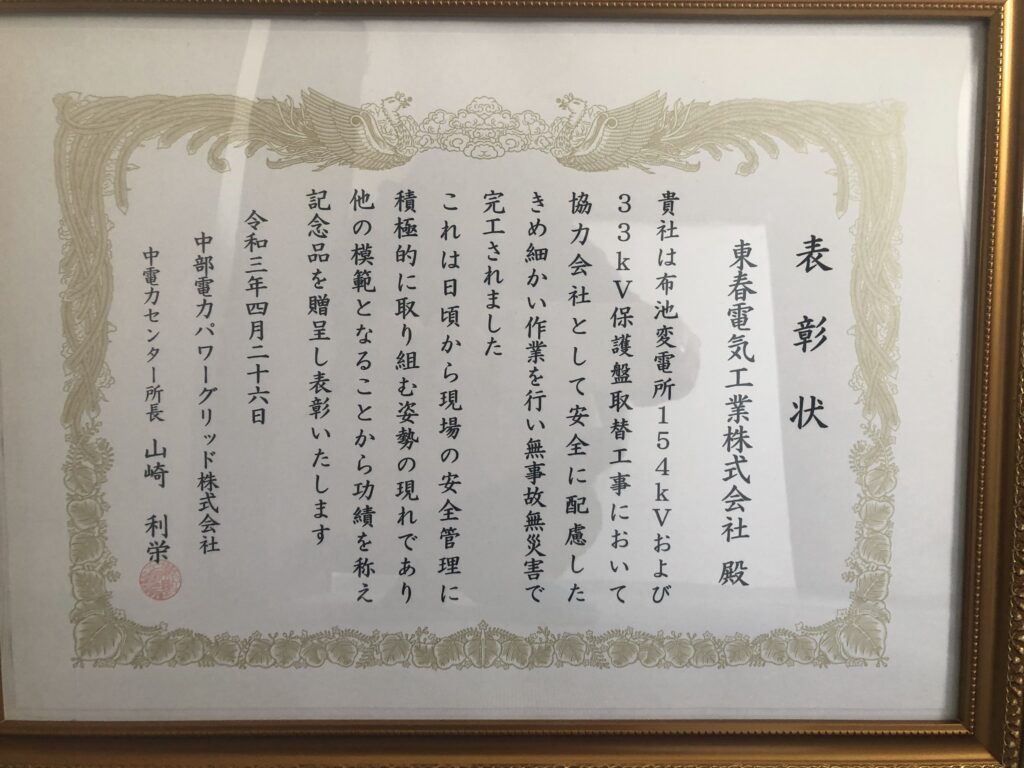 表彰状
東春電気工業株式会社 殿
貴社は布池変電所154kVおよび
33kV保護盤取替工事において
協力会社として安全に配慮した
きめ細かい作業を行い無事故無災害で
完工されました
これは日頃から現場の安全管理に
積極的に取り組む姿勢の現れであり
他の模範となることから功績を称え
記念品を贈呈し表彰いたします
令和三年四月二十六日
中部電力パワーグリッド株式会社
中電力センター所長 山崎 利栄